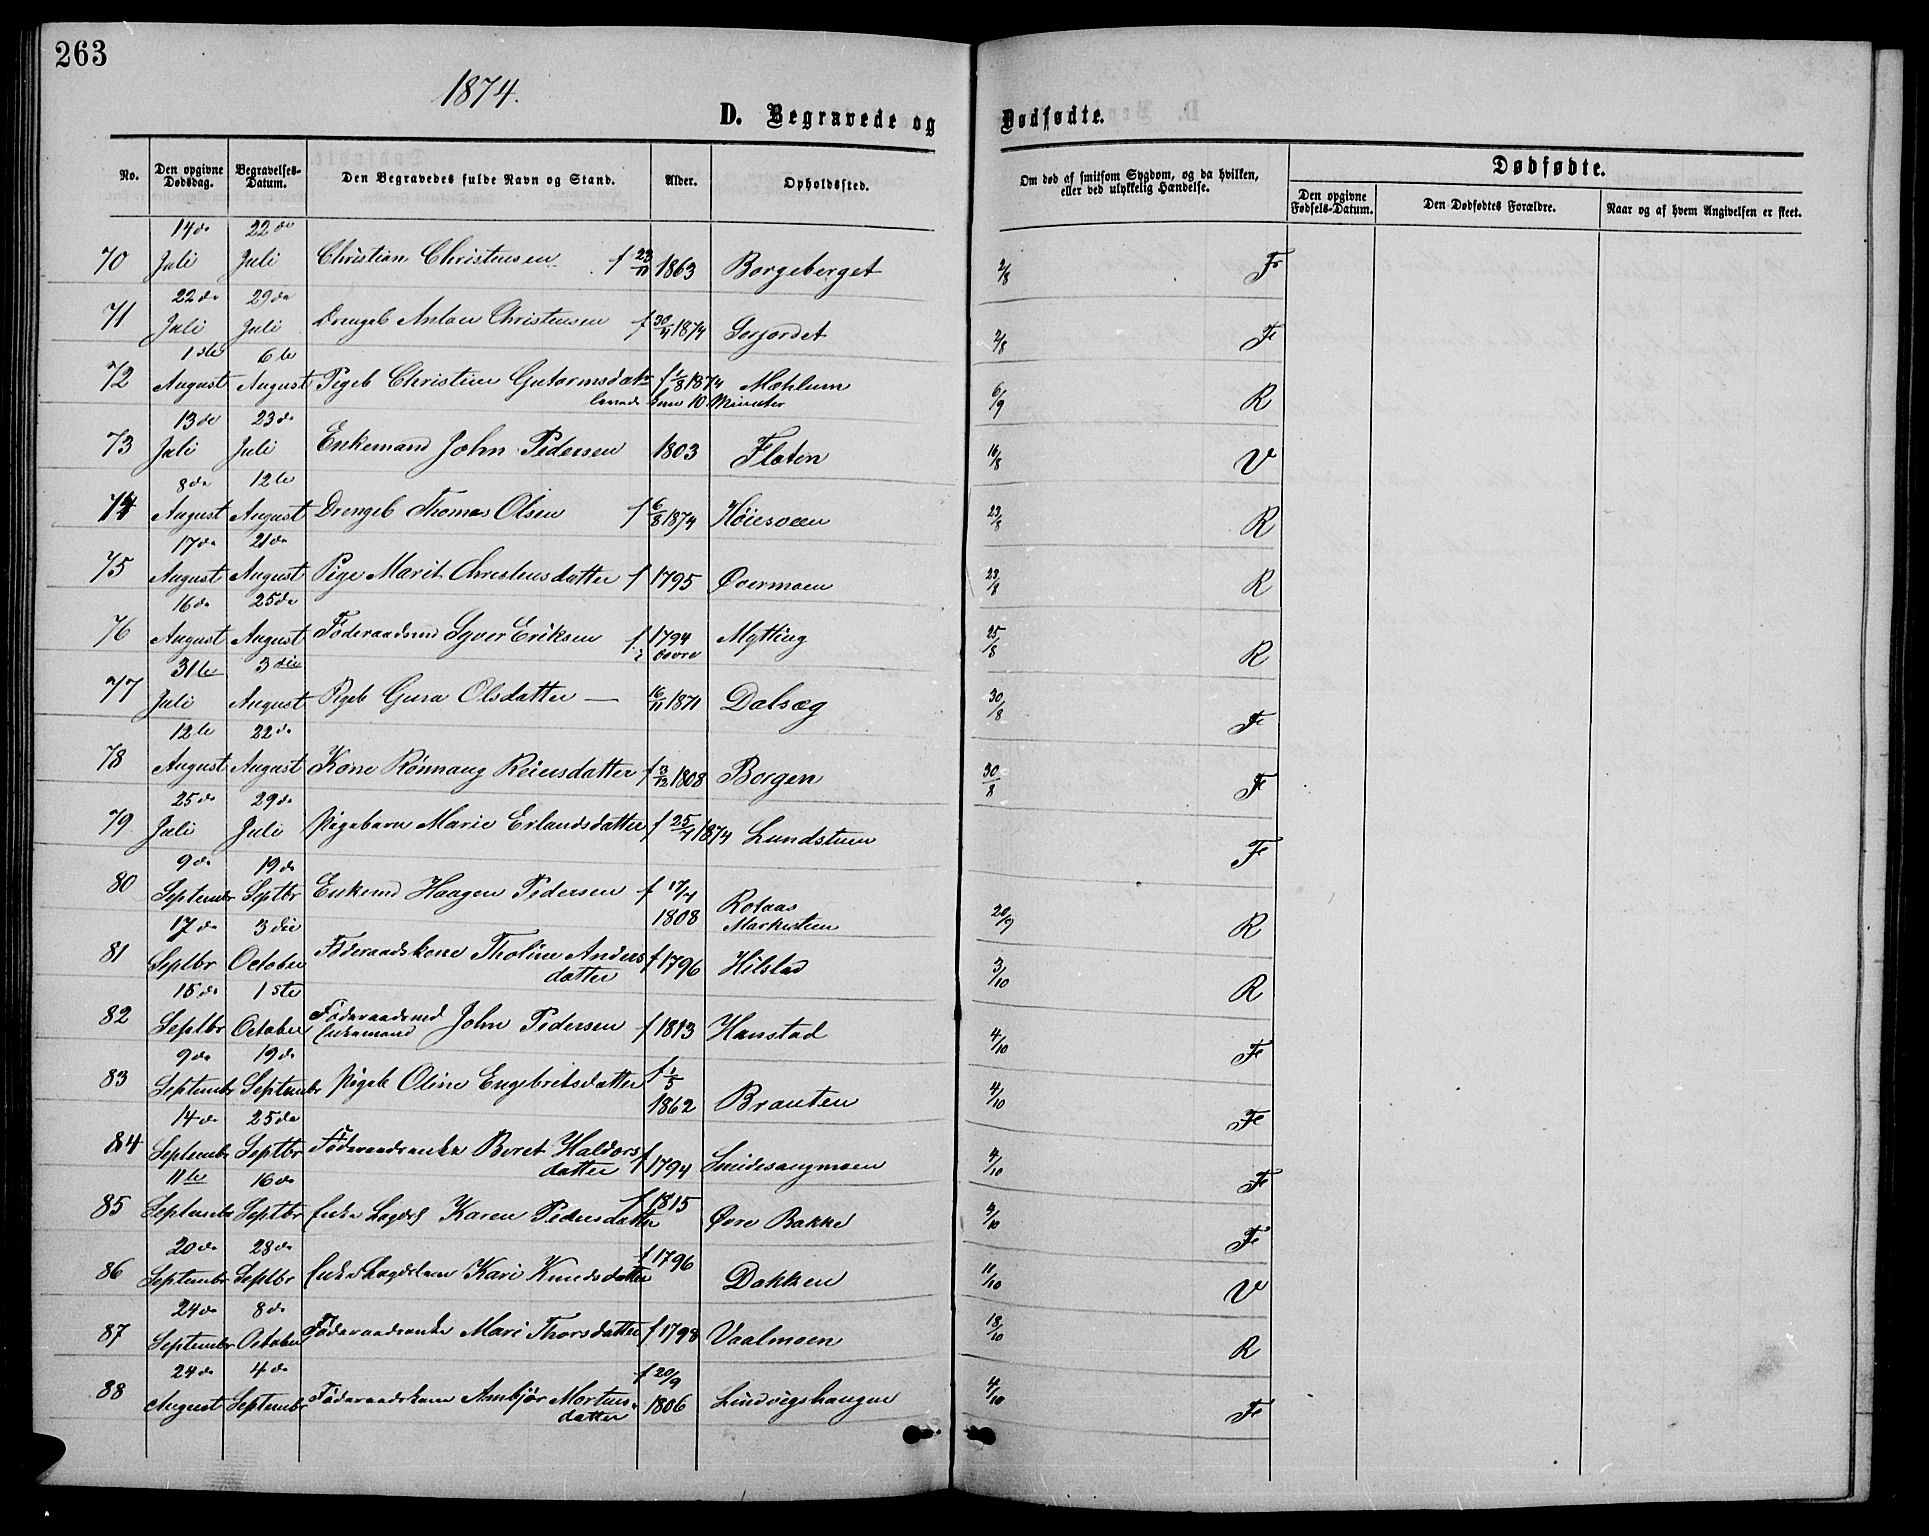 263
1874.
D. Begravede og Dødfødte.
No. Den opgivne Dødsdag. Begravelses-Datum. Den Begravedes fulde Navn og Stand. Alder. Opholdssted. Om død af smitsom Sygdom, og da hvilken, eller ved ulykkelig Hændelse. Dødfødte.
Den opgivne Fødsels-Datum. Den Dødfødtes Forældre. Naar og af hvem Angivelsen er skeet.
14de 22de
70 Juli Juli Christian Christensen f 23/11 1863 Borgeberget 2/8 Fr
22de 29de
71 Juli Juli Drengeb Anton Christensen f 30/4 1874 2/8 Fr
1ste 6te
72 August August Pigeb Christine Gutormsdatr f 1/8 1874 Mæhlum 6/9 R
levede kun 10 Minuter
13de 23de
73 Juli Juli Enkemand John Pedersen 1803 Flaten 16/8 V
8de 12te
74 August August Drengeb Thomas Olsen f 6/8 1874 Høiesveen 23/8 R
17de 21de
75 August August Pige Marit Christensdatter f 1795 Overmoen 23/8 R
16de 25de
76 August August Føderaadsmd Syver Eriksen f 1794 Mytting 25/8 R
i Dovre
31te 3die
77 Juli August Pigeb Guna Olsdatter — 16/11 1871 Dalsæg 30/8 Fr
12te 22de
78 August August Kone Rønnaug Reiersdatter f 3/12 1808 Borgen 30/8 Fr
25de 29de
79 Juli Juli Pigebarn Marie Erlandsdatter f 25/4 1874 Lundstuen Fr
9de 19de
80 Septembr Septbr Enkemd Haagen Pedersen f 17/4 1808 Rolaas 20/9 R
17de 3die
81 Septbr October Føderaadskone Tholine Anders f 1796 Hilstad 3/10 R
datter
15de 1ste
82 Septbr October Føderaadsmd John Pedersen f 1813 Hanstad 4/10 Fr
Enkemand
9de 19de
83 Septembr Septembr Pigeb Oline Engebretsdatter f 1/5 1862 Brauten 4/10 Fr
14de 25de
84 Septembr Septbr Føderaadsenke Beret Haldors f 1794 4/10 Fr
datter
11te 16de
85 Septembr Septbr Enke Lægdsl Karen Pedersdatter f 1815 Øvre Bakke 4/10 Fr
20de 28de
86 Septembr Septbr Enke Lægdslem Kari Knudsdatter f 1796 Dakken 11/10 V
24de 8de
87 Septembr October Føderaadsenke Mari Thorsdatter f 1798 Vaalmoen 18/10 R
24de 4de
88 August Septembr Føderaadskone Ambjør Mortens- f 20/9 1806 Lindvigshaugen 4/10 Fr
datter